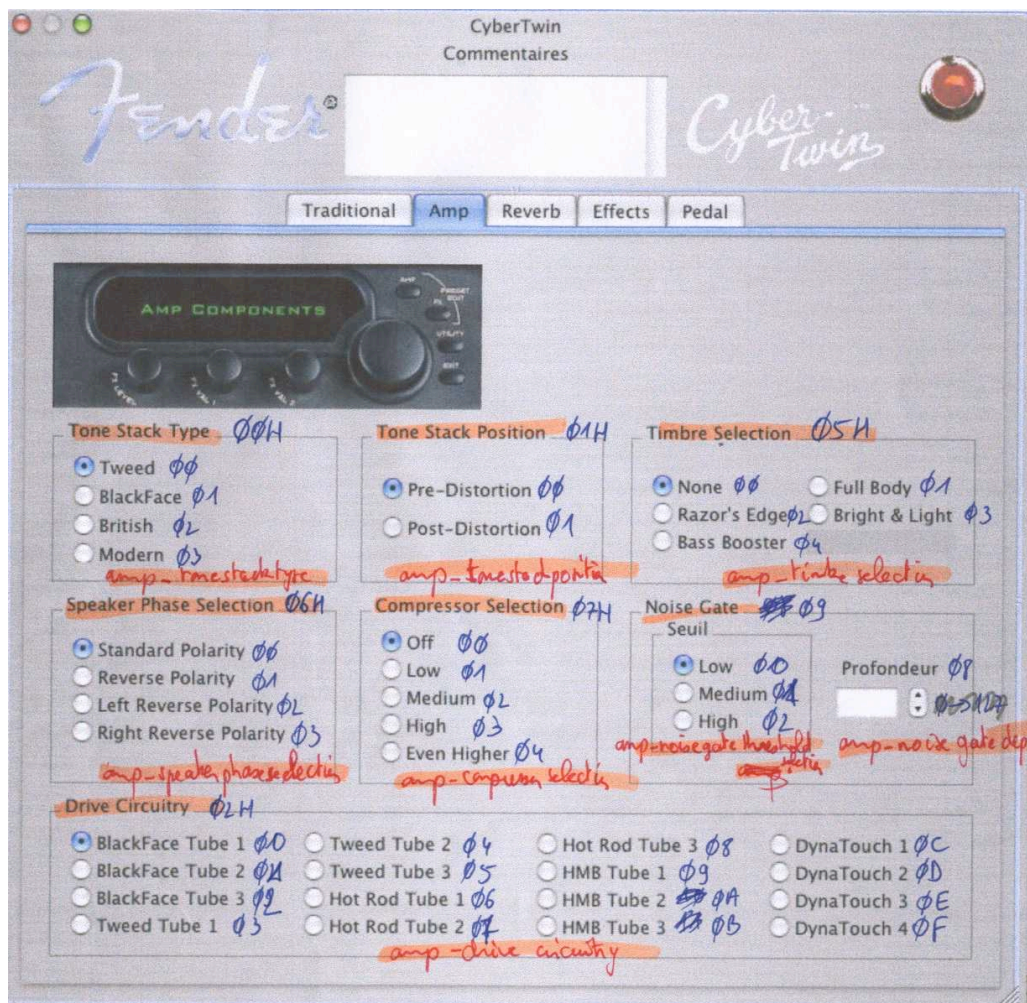 CyberTwin
Commentaires
Fender®
Cyber-Twin
Traditional Amp Reverb Effects Pedal
AMP COMPONENTS
AMP
PRESET EDIT
FX
UTILITY
EXIT
FX LEVEL FX VAL 1 FX VAL 2
Tone Stack Type ØØH
Tweed ØØ
BlackFace Ø1
British Ø2
Modern Ø3
amp_tonestacktype
Tone Stack Position Ø1H
Pre-Distortion ØØ
Post-Distortion Ø1
amp_tonestackposition
Timbre Selection Ø5H
None ØØ Full Body Ø1
Razor's Edge Ø2 Bright & Light Ø3
Bass Booster Ø4
amp_timbre selection
Speaker Phase Selection Ø6H
Standard Polarity ØØ
Reverse Polarity Ø1
Left Reverse Polarity Ø2
Right Reverse Polarity Ø3
amp_speaker phase selection
Compressor Selection Ø7H
Off ØØ
Low Ø1
Medium Ø2
High Ø3
Even Higher Ø4
amp_compressor selection
Noise Gate Ø9
Seuil
Low ØØ
Medium Ø1
High Ø2
amp_noisegate threshold
selection
Profondeur Ø8
amp_noise gate dep
Drive Circuitry Ø2H
BlackFace Tube 1 ØØ Tweed Tube 2 Ø4 Hot Rod Tube 3 Ø8 DynaTouch 1 ØC
BlackFace Tube 2 Ø1 Tweed Tube 3 Ø5 HMB Tube 1 Ø9 DynaTouch 2 ØD
BlackFace Tube 3 Ø2 Hot Rod Tube 1 Ø6 HMB Tube 2 ØA DynaTouch 3 ØE
Tweed Tube 1 Ø3 Hot Rod Tube 2 Ø7 HMB Tube 3 ØB DynaTouch 4 ØF
amp_drive circuitry